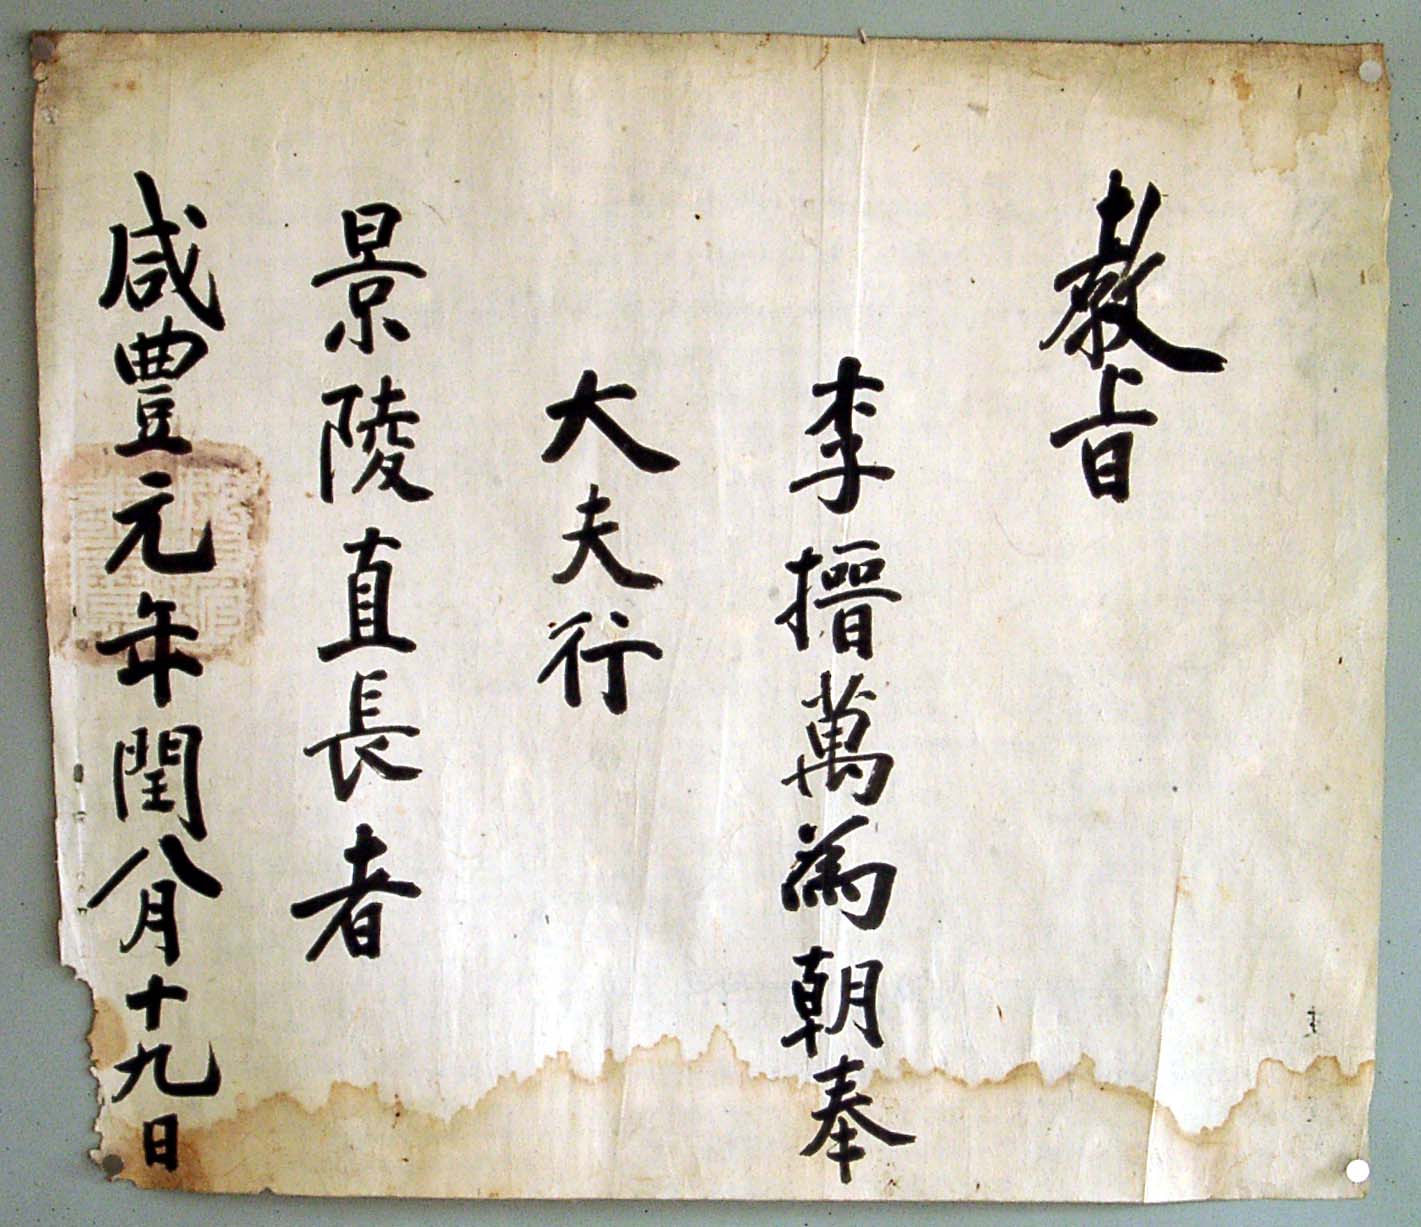 敎旨
李搢萬為朝奉
大夫行
景陵直長者
咸豐元年閏八月十九日